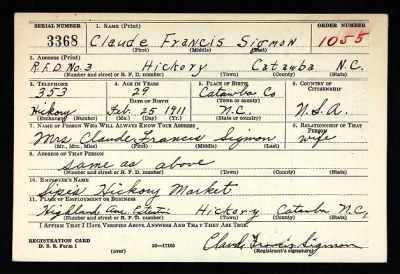 SERIAL NUMBER 1. NAME (Print) ORDER NUMBER
3368 Claude Francis Sigmon 1055
(First) (Middle) (Last)
2. ADDRESS (Print)
R.F.D. No. 3 Hickory Catawba N.C.
(Number and street or R. F. D. number) (Town) (County) (State)
3. TELEPHONE 4. AGE IN YEARS 5. PLACE OF BIRTH 6. COUNTRY OF CITIZENSHIP
353 29 Catawba Co
DATE OF BIRTH (Town or county)
Hickory Feb. 25 1911 N.C. U.S.A.
(Exchange) (Number) (Mo.) (Day) (Yr.) (State or country)
7. NAME OF PERSON WHO WILL ALWAYS KNOW YOUR ADDRESS 8. RELATIONSHIP OF THAT PERSON
Mrs Claude Francis Sigmon wife
(Mr., Mrs., Miss) (First) (Middle) (Last)
9. ADDRESS OF THAT PERSON
Same as above
(Number and street or R. F. D. number) (Town) (County) (State)
10. EMPLOYER'S NAME
Hickory Market
11. PLACE OF EMPLOYMENT OR BUSINESS
Highland Ave. Hickory Catawba N.C.
(Number and street or R. F. D. number) (Town) (County) (State)
I AFFIRM THAT I HAVE VERIFIED ABOVE ANSWERS AND THAT THEY ARE TRUE.
REGISTRATION CARD
D. S. S. Form 1 (over) 16—17105 Claude Francis Sigmon
(Registrant's signature)